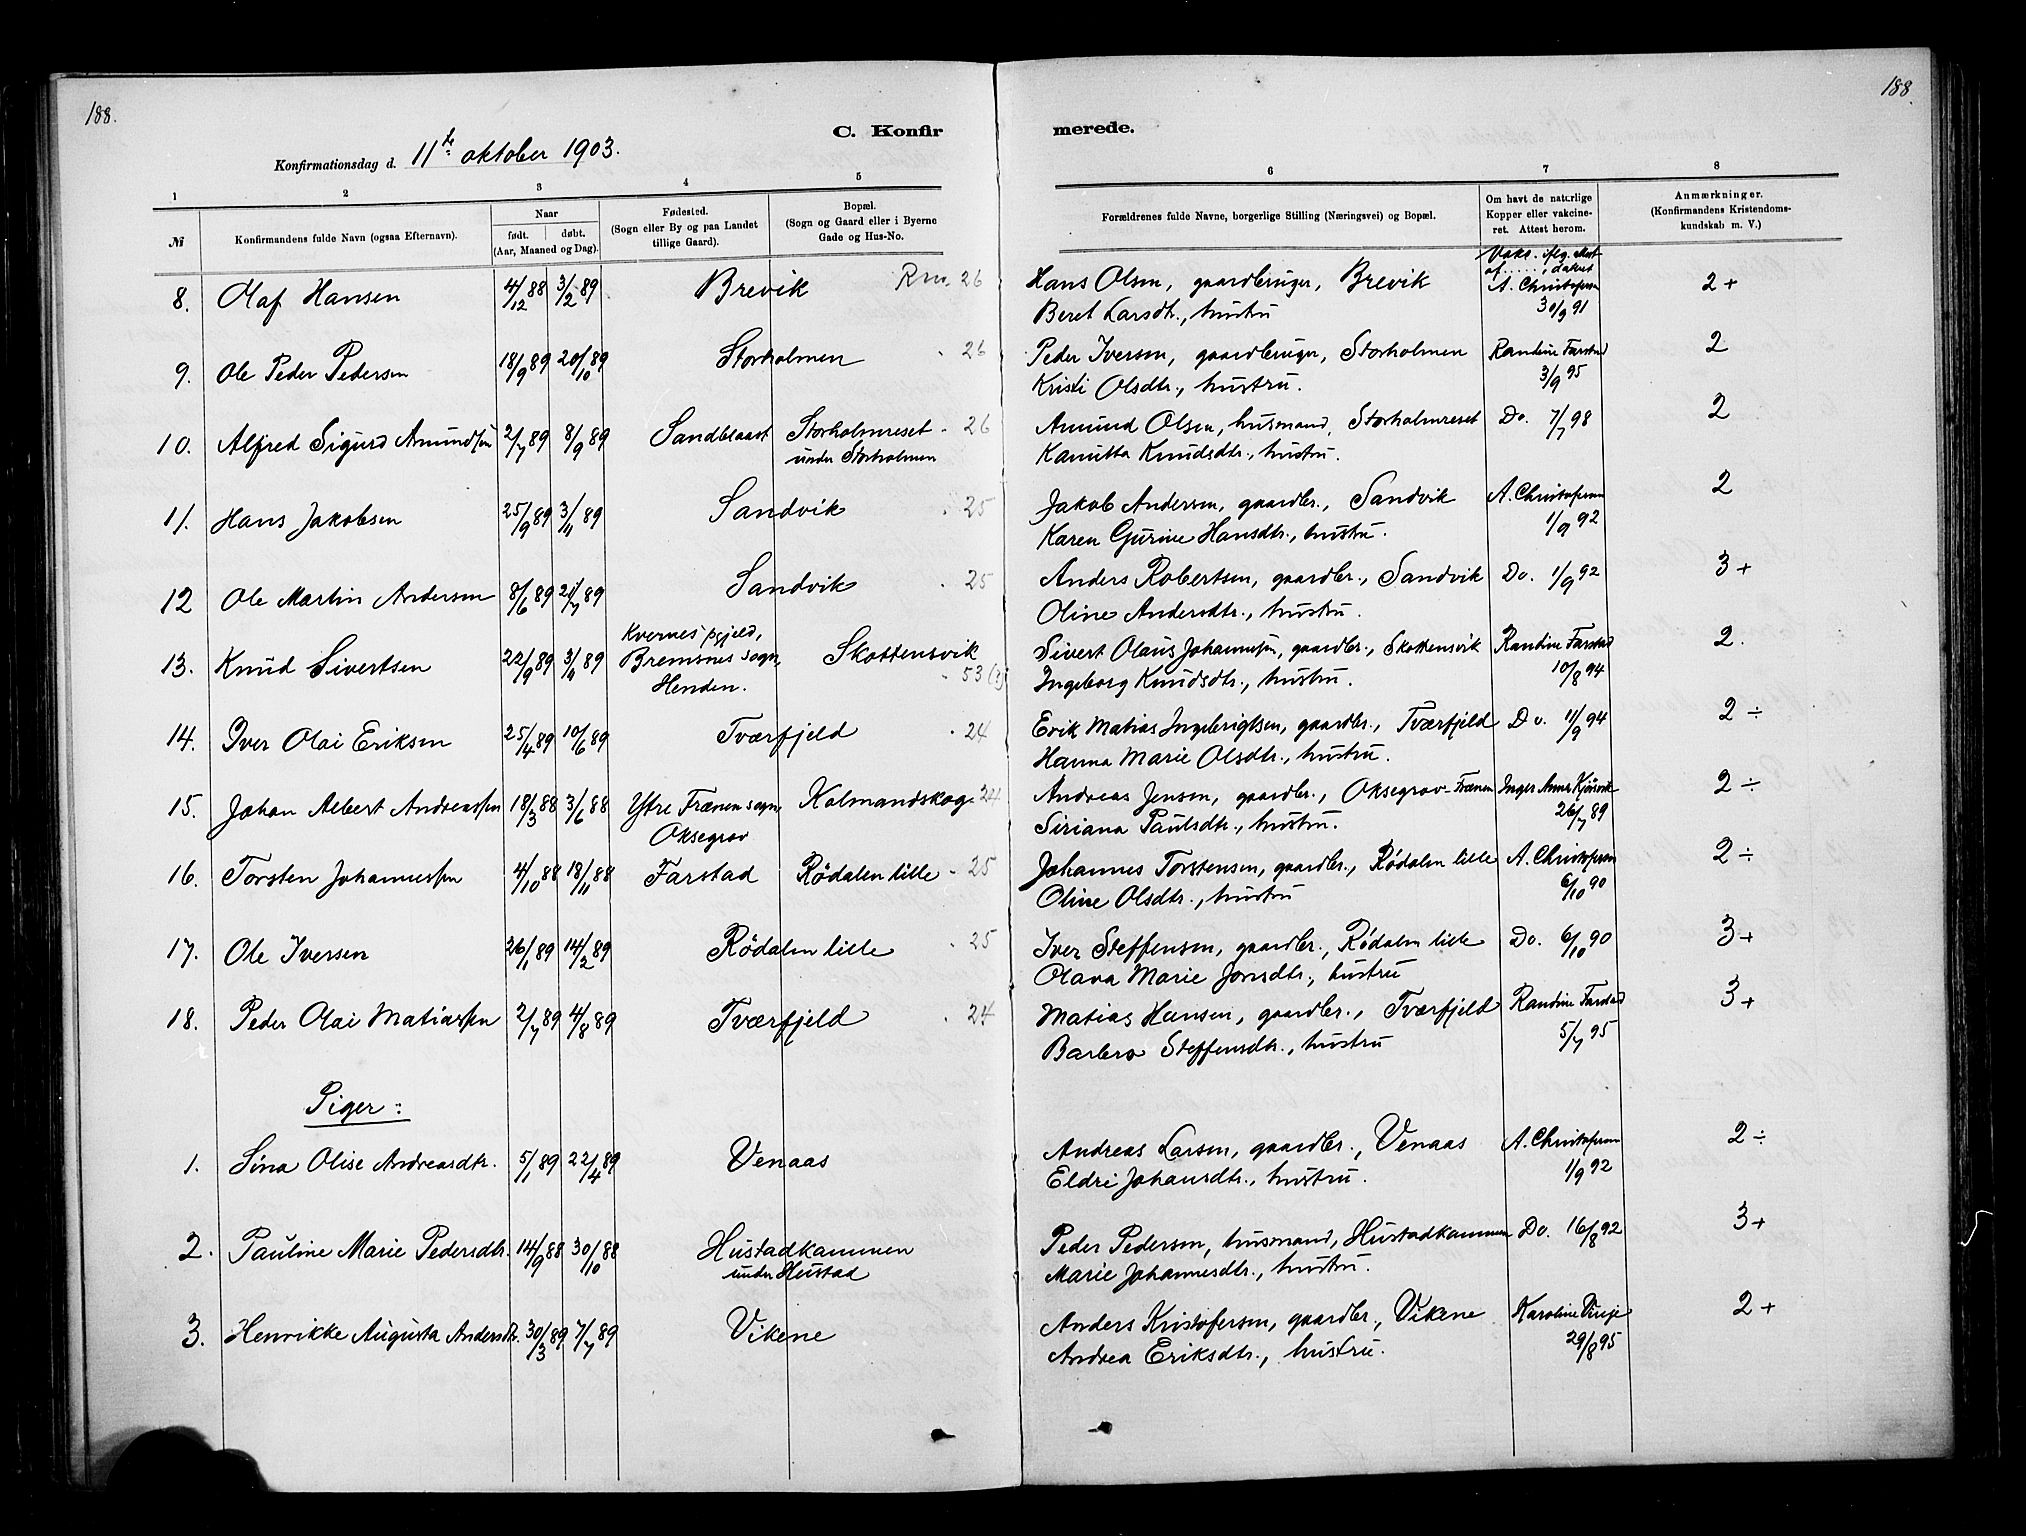 188.
188.
C. Konfir
merede.
Konfirmationsdag d. 11te oktober 1903.
1 2 3 4 5 6 7 8
№ Konfirmandens fulde Navn (ogsaa Efternavn).
Naar
født. døbt.
(Aar, Maaned og Dag).
Fødested.
(Sogn eller By og paa Landet
tillige Gaard).
Bopæl.
(Sogn og Gaard eller i Byerne
Gade og Hus-No.
Forældrenes fulde Navne, borgerlige Stilling (Næringsvei) og Bopæl.
Om havt de naturlige
Kopper eller vakcine-
ret. Attest herom.
Anmærkninger.
(Konfirmandens Kristendoms-
kundskab m. V.)
8. Olaf Hansen 4/12 88 3/2 89 Brevik Rm. 26 Hans Olsen, gaardbruger, Brevik A. Christofersen 2+
Beret Larsdtr., hustru 30/9 91
9. Ole Peder Pedersen 18/9 89 20/10 89 Storholmen - 26 Peder Iversen, gaardbruger, Storholmen Randine Farstad 2
Kristi Olsdtr., hustru. 3/9 95
10. Alfred Sigurd Amundsen 2/7 89 8/9 89 Sandblaast Storholmreset - 26 Amund Olsen, husmand, Storholmreset Do. 7/7 98 2
under Storholmen Kanutta Knudsdtr., hustru.
11. Hans Jakobsen 25/9 89 3/11 89 Sandvik - 25 Jakob Andersen, gaardbr., Sandvik A. Christofersen 2
Karen Gurine Hansdtr., hustru. 1/9 92
12 Ole Martin Andersen 8/6 89 21/7 89 Sandvik - 25 Anders Robertsen, gaardbr., Sandvik Do. 1/9 92 3+
Oline Andersdtr., hustru.
13. Knud Sivertsen 22/9 89 3/11 89 Kvernes pgjeld, Skottensvik Sivert Olaus Johannesen, gaardbr., Skottensvik Randine Farstad 2.
Bremsnes sogn, - 53 (?) Ingeborg Knudsdtr., hustru. 10/8 94
Henden.
14. Iver Olai Eriksen 25/4 89 10/6 89 Tværfjeld - 24 Erik Matias Ingebrigtsen, gaardbr., Tværfjeld Do. 11/9 94 2 ÷
Hanna Marie Olsdtr., hustru.
15. Johan Albert Andreassen 18/3 88 3/6 88 Ytre Frænen sogn, Kolmandskog - 24 Andreas Jensen, gaardbr., Oksegrav - Frænen Inger Anne Kjørsvik 2 ÷
Oksegrav Siriana Paulsdtr., hustru. 26/7 89
16. Torsten Johannessen 4/10 88 18/11 88 Farstad Rødalen lille - 25 Johannes Torstensen, gaardbr., Rødalen lille A. Christofersen 2 ÷
Oline Olsdtr., hustru 6/10 90
17. Ole Iversen 26/1 89 14/2 89 Rødalen lille - 25 Iver Steffensen, gaardbr., Rødalen lille Do. 6/10 90 3+
Olava Marie Jonsdtr., hustru
18. Peder Olai Matiassen 2/7 89 4/8 89 Tværfjeld - 24 Matias Hansen, gaardbr., Tværfjeld Randine Farstad 3+
Barbro Steffensdtr., hustru 5/7 95
Piger:
1. Sina Olise Andreasdtr. 5/1 89 22/4 89 Venaas Andreas Larsen, gaardbr., Venaas A. Christofersen 2 ÷
Eldri Johansdtr., hustru. 1/9 92
2. Pauline Marie Pedersdtr. 14/9 88 30/10 88 Hustadkammen Peder Pedersen, husmand, Hustadkammen Do. 16/8 92 3+
under Hustad Marie Johannesdtr., hustru.
3. Henrikke Augusta Andersdtr. 30/3 89 7/7 89 Vikene Anders Kristofersen, gaardbr., Vikene Karoline 2+
Andrea Eriksdtr., hustru. 29/8 95